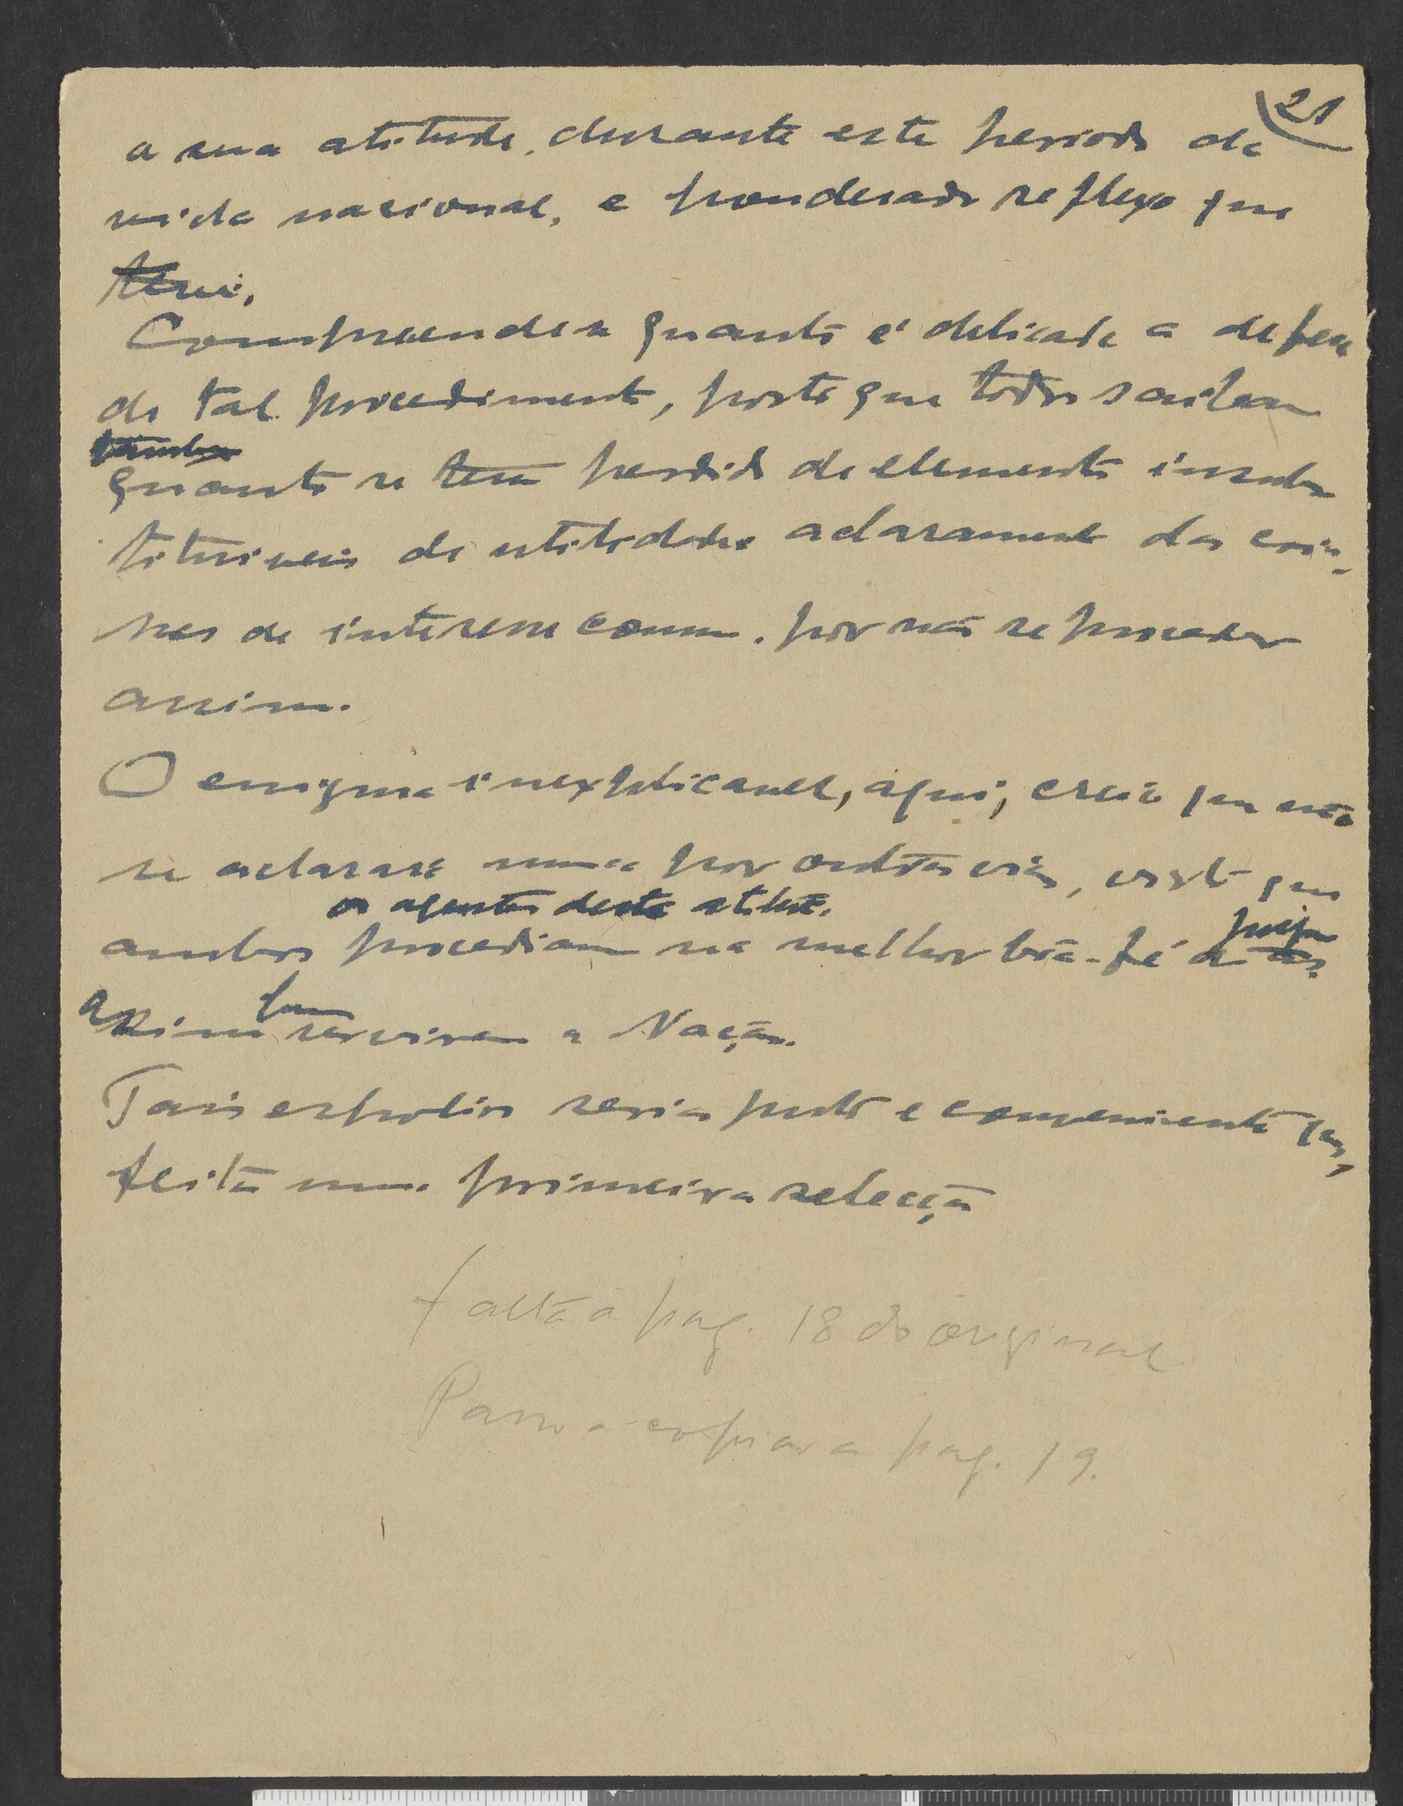 21
a sua atitude, durante este periodo da
vida nacional, e ponderado reflexo que
teui.
Compreende-se quanto é delicada a defesa
de tal procedimento, posto que todos saibam
quanto se tem perdido de elementos insubs
tituiveis de utilidade aclaramento das coi-
sas de interesse comum. por não se proceder
assim.
O enigma inexplicavel, aqui, creio que não
se aclarará nunca por outra via, visto que
os agentes desta
ambos procediam na melhor bôa-fé a
assim servirem a Nação.
Tais espolios seria justo e conveniente que,
feita uma primeira selecção
falta a pag. 18 do original
Passo a copiar a pag. 19.